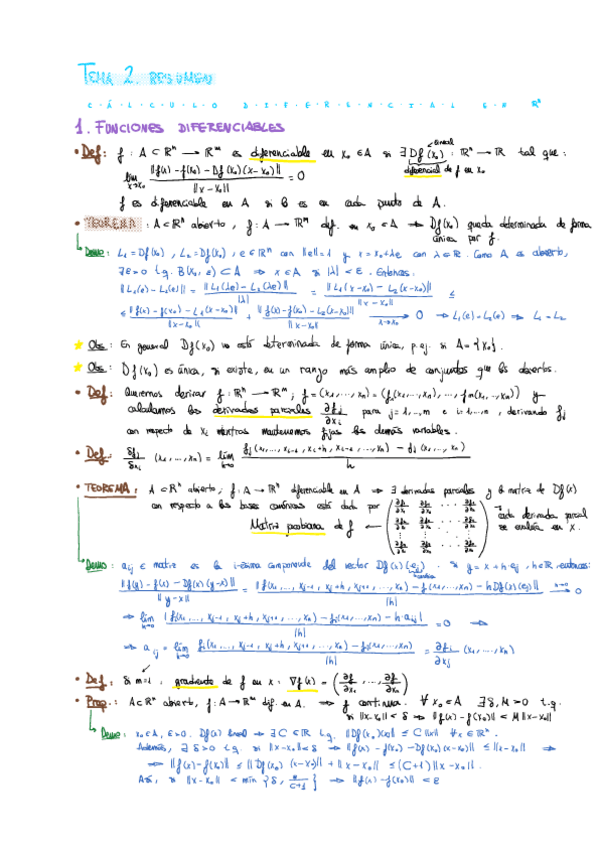 TEMA 2. RESUMEN
CÁLCULO DIFERENCIAL EN ℝⁿ
1. FUNCIONES DIFERENCIABLES
• Def: f: A ⊂ ℝⁿ → ℝᵐ es diferenciable en x₀ ∈ A si ∃ Df(x₀): ℝⁿ → ℝ tal que:
lineal
lim x→x₀ ||f(x) - f(x₀) - Df(x₀)(x - x₀)|| / ||x - x₀|| = 0
diferencial de f en x₀
f es diferenciable en A si lo es en cada punto de A.
• TEOREMA: A ⊂ ℝⁿ abierto, f: A → ℝᵐ dif. en x₀ ∈ A ⇒ Df(x₀) queda determinada de forma
única por f.
Demo: L₁ = Df(x₀), L₂ = Df(x₀), e ∈ ℝⁿ con ||e|| = 1 y x = x₀ + λe con λ ∈ ℝ. Como A es abierto,
∃ε > 0 t.q. B(x₀, ε) ⊂ A ⇒ x ∈ A si |λ| < ε. Entonces:
||L₁(e) - L₂(e)|| = ||L₁(λe) - L₂(λe)|| / |λ| = ||L₁(x - x₀) - L₂(x - x₀)|| / ||x - x₀|| ≤
≤ ||f(x) - f(x₀) - L₁(x - x₀)|| / ||x - x₀|| + ||f(x) - f(x₀) - L₂(x - x₀)|| / ||x - x₀|| → 0 ⇒ L₁(e) = L₂(e) ⇒ L₁ = L₂
x→x₀
Obs: En general Df(x₀) no está determinada de forma única, p.ej. si A = {x₀}.
Obs: Df(x₀) es única, si existe, en un rango más amplio de conjuntos que los abiertos.
• Def: Queremos derivar f: ℝⁿ → ℝᵐ; f = (x₁, ..., xₙ) = (f₁(x₁, ..., xₙ), ..., fₘ(x₁, ..., xₙ)) y
calculamos las derivadas parciales ∂fⱼ/∂xᵢ para j = 1, .., m e i = 1, ..., n, derivando fⱼ
con respecto de xᵢ mientras mantenemos fijas las demás variables.
• Def: ∂fⱼ/∂xᵢ (x₁, ..., xₙ) = lim h→0 fⱼ(x₁, ..., xᵢ₋₁, xᵢ + h, xᵢ₊₁, ..., xₙ) - fⱼ(x₁, ..., xₙ) / h
• TEOREMA: A ⊂ ℝⁿ abierto, f: A → ℝᵐ diferenciable en A ⇒ ∃ derivadas parciales y la matriz de Df(x)
con respecto a las bases canónicas está dada por
Matriz jacobiana de f ←
cada derivada parcial
se evalúa en x.
Demo: aᵢⱼ ∈ matriz es la i-ésima componente del vector Df(x)(eⱼ). Si y = x + h·eⱼ, h ∈ ℝ, entonces:
||f(y) - f(x) - Df(x)(y - x)|| / ||y - x|| = ||f(x₁, ..., xⱼ₋₁, xⱼ + h, xⱼ₊₁, ..., xₙ) - f(x₁, ..., xₙ) - hDf(x)(eⱼ)|| / |h| → 0
⇒ lim h→0 |fᵢ(x₁, ..., xⱼ₋₁, xⱼ + h, xⱼ₊₁, ..., xₙ) - fᵢ(x₁, ..., xₙ) - h·aᵢⱼ| / |h| = 0 ⇒
⇒ aᵢⱼ = lim h→0 fᵢ(x₁, ..., xⱼ₋₁, xⱼ + h, xⱼ₊₁, ..., xₙ) - fᵢ(x₁, ..., xₙ) / |h| = ∂fᵢ/∂xⱼ (x₁, ..., xₙ)
• Def: Si m=1, gradiente de f en x: ∇f(x) = (∂f/∂x₁, ..., ∂f/∂xₙ)
• Prop: A ⊂ ℝⁿ abierto, f: A → ℝᵐ dif. en A. ⇒ f continua. ∀ x₀ ∈ A ∃ δ, M > 0 t.q.
si ||x - x₀|| < δ ⇒ ||f(x) - f(x₀)|| < M||x - x₀||
Demo: x₀ ∈ A, ε > 0. Df(x) lineal ⇒ ∃ C ∈ ℝ t.q. ||Df(x₀)(x)|| ≤ C||x|| ∀x ∈ ℝⁿ.
Además, ∃ δ > 0 t.q. si ||x - x₀|| < δ ⇒ ||f(x) - f(x₀) - Df(x₀)(x - x₀)|| ≤ ||x - x₀|| ⇒
⇒ ||f(x) - f(x₀)|| ≤ ||Df(x₀)(x - x₀)|| + ||x - x₀|| ≤ (C+1)||x - x₀||.
Así, si ||x - x₀|| < min {δ, ε/(C+1)} ⇒ ||f(x) - f(x₀)|| < ε